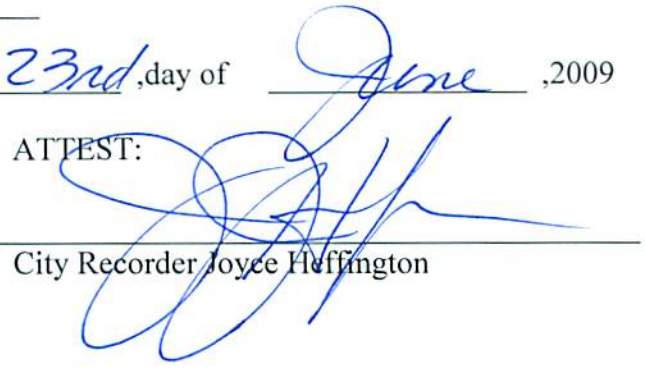 23rd ,day of June ,2009
ATTEST:
City Recorder Joyce Heffington